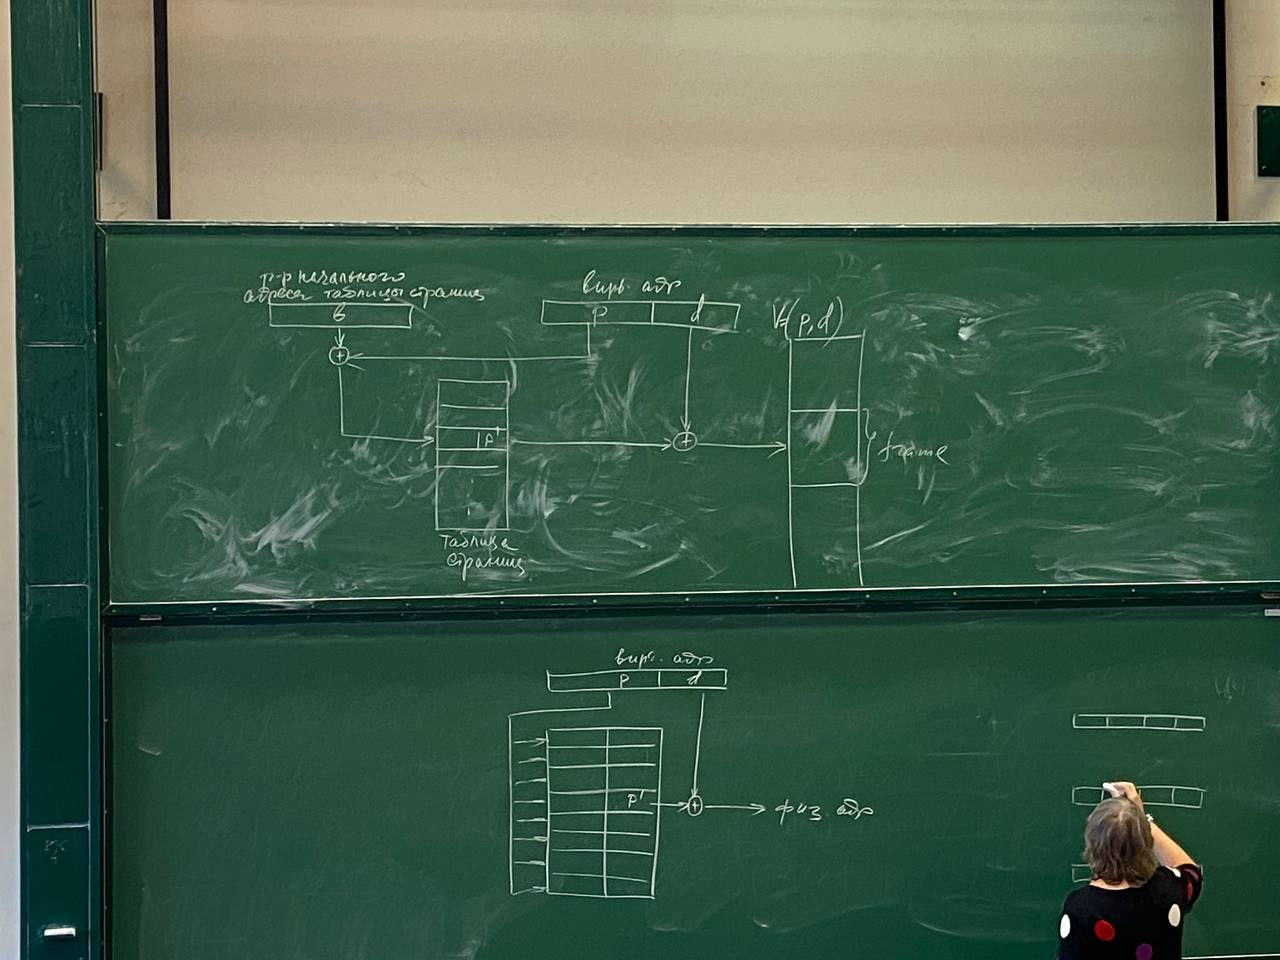 р-р начального
адреса таблицы страниц
б
вирт. адр
p d
V=(p,d)
p'
frame
таблица
страниц
вирт. адр
p d
p'
физ. адр